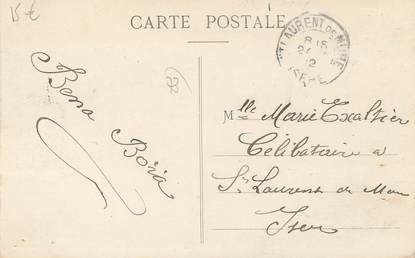 15 €
CARTE POSTALE
ST LAURENT-DE-MURE
ISERE
8 15
12
33
Bena
Bória
Mlle Marie Exaltier
Célibataire a
St Laurent de Mure
Iser